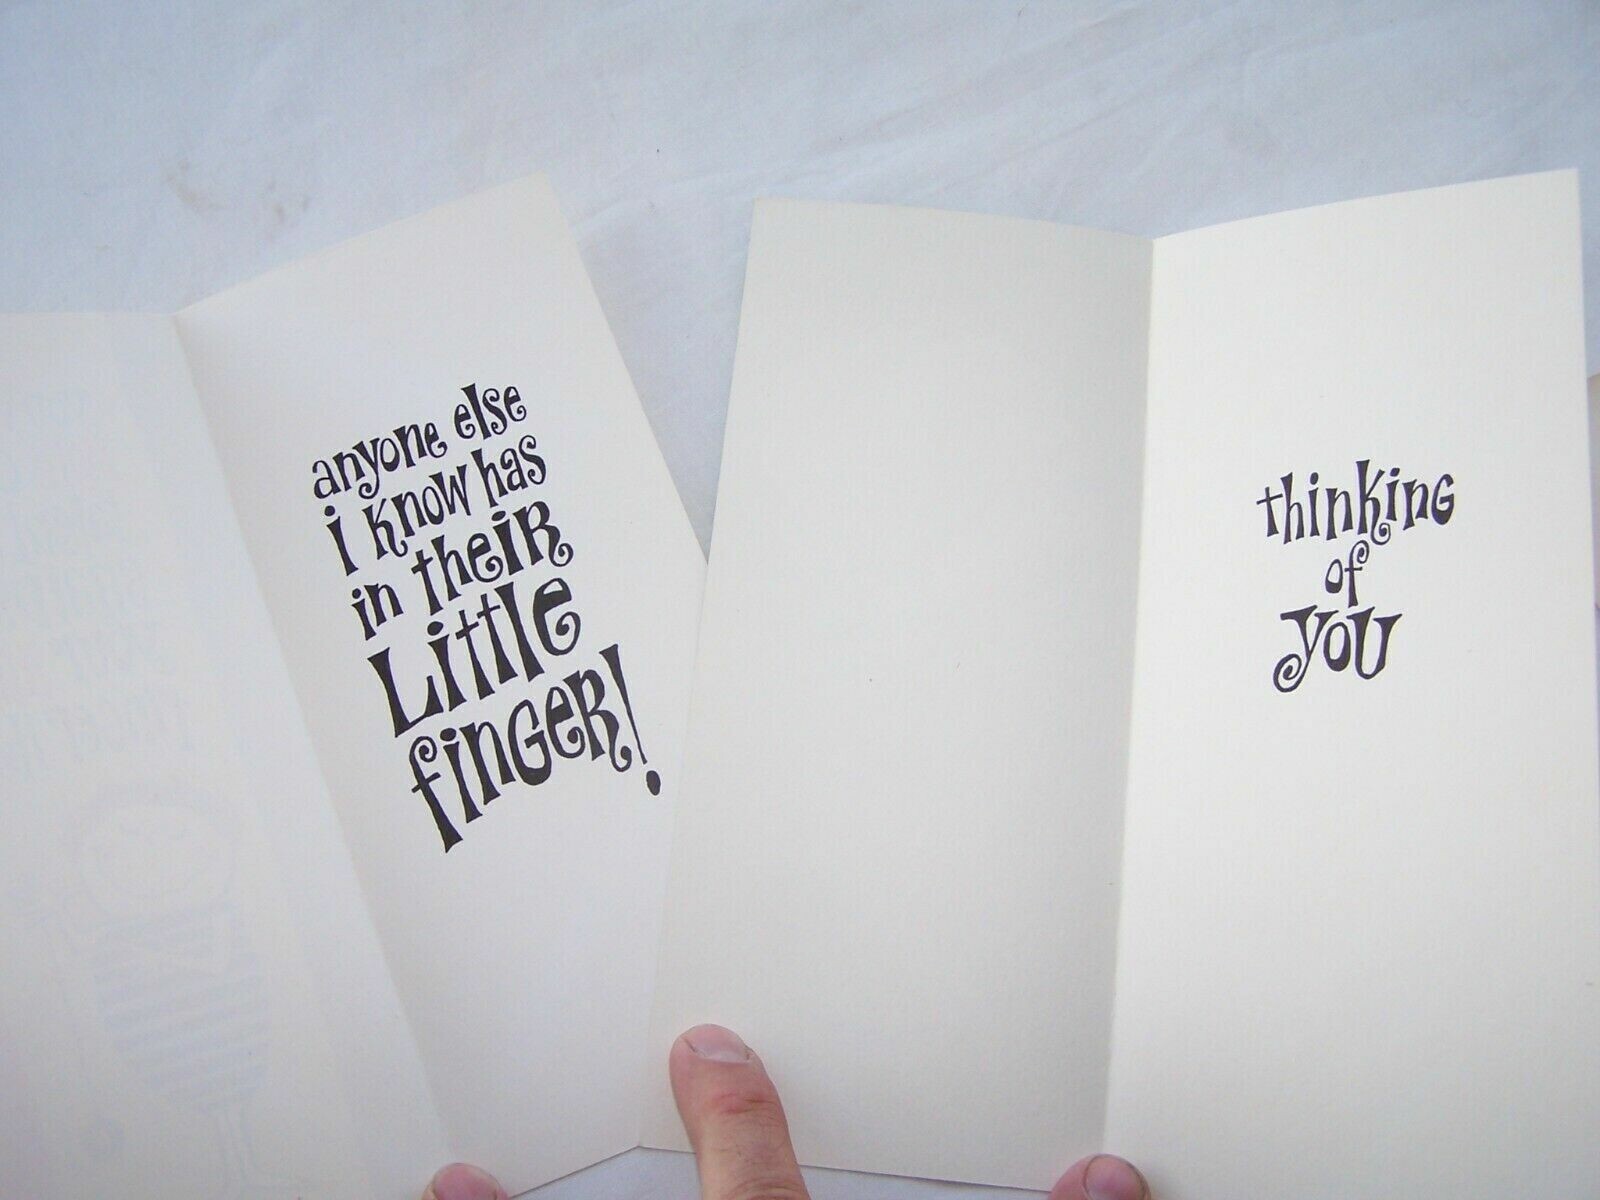 anyone else
i know has
in their
Little
finger!
thinking
of
you